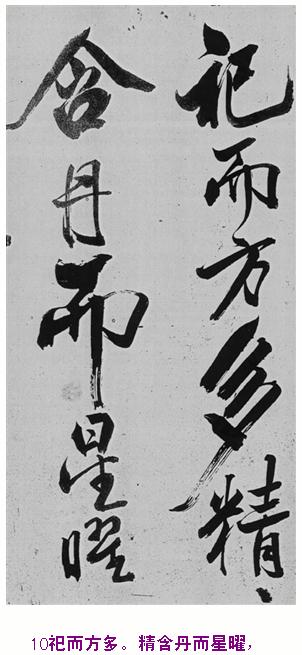 祀而方多精
含丹而星曜
10祀而方多。精含丹而星曜，